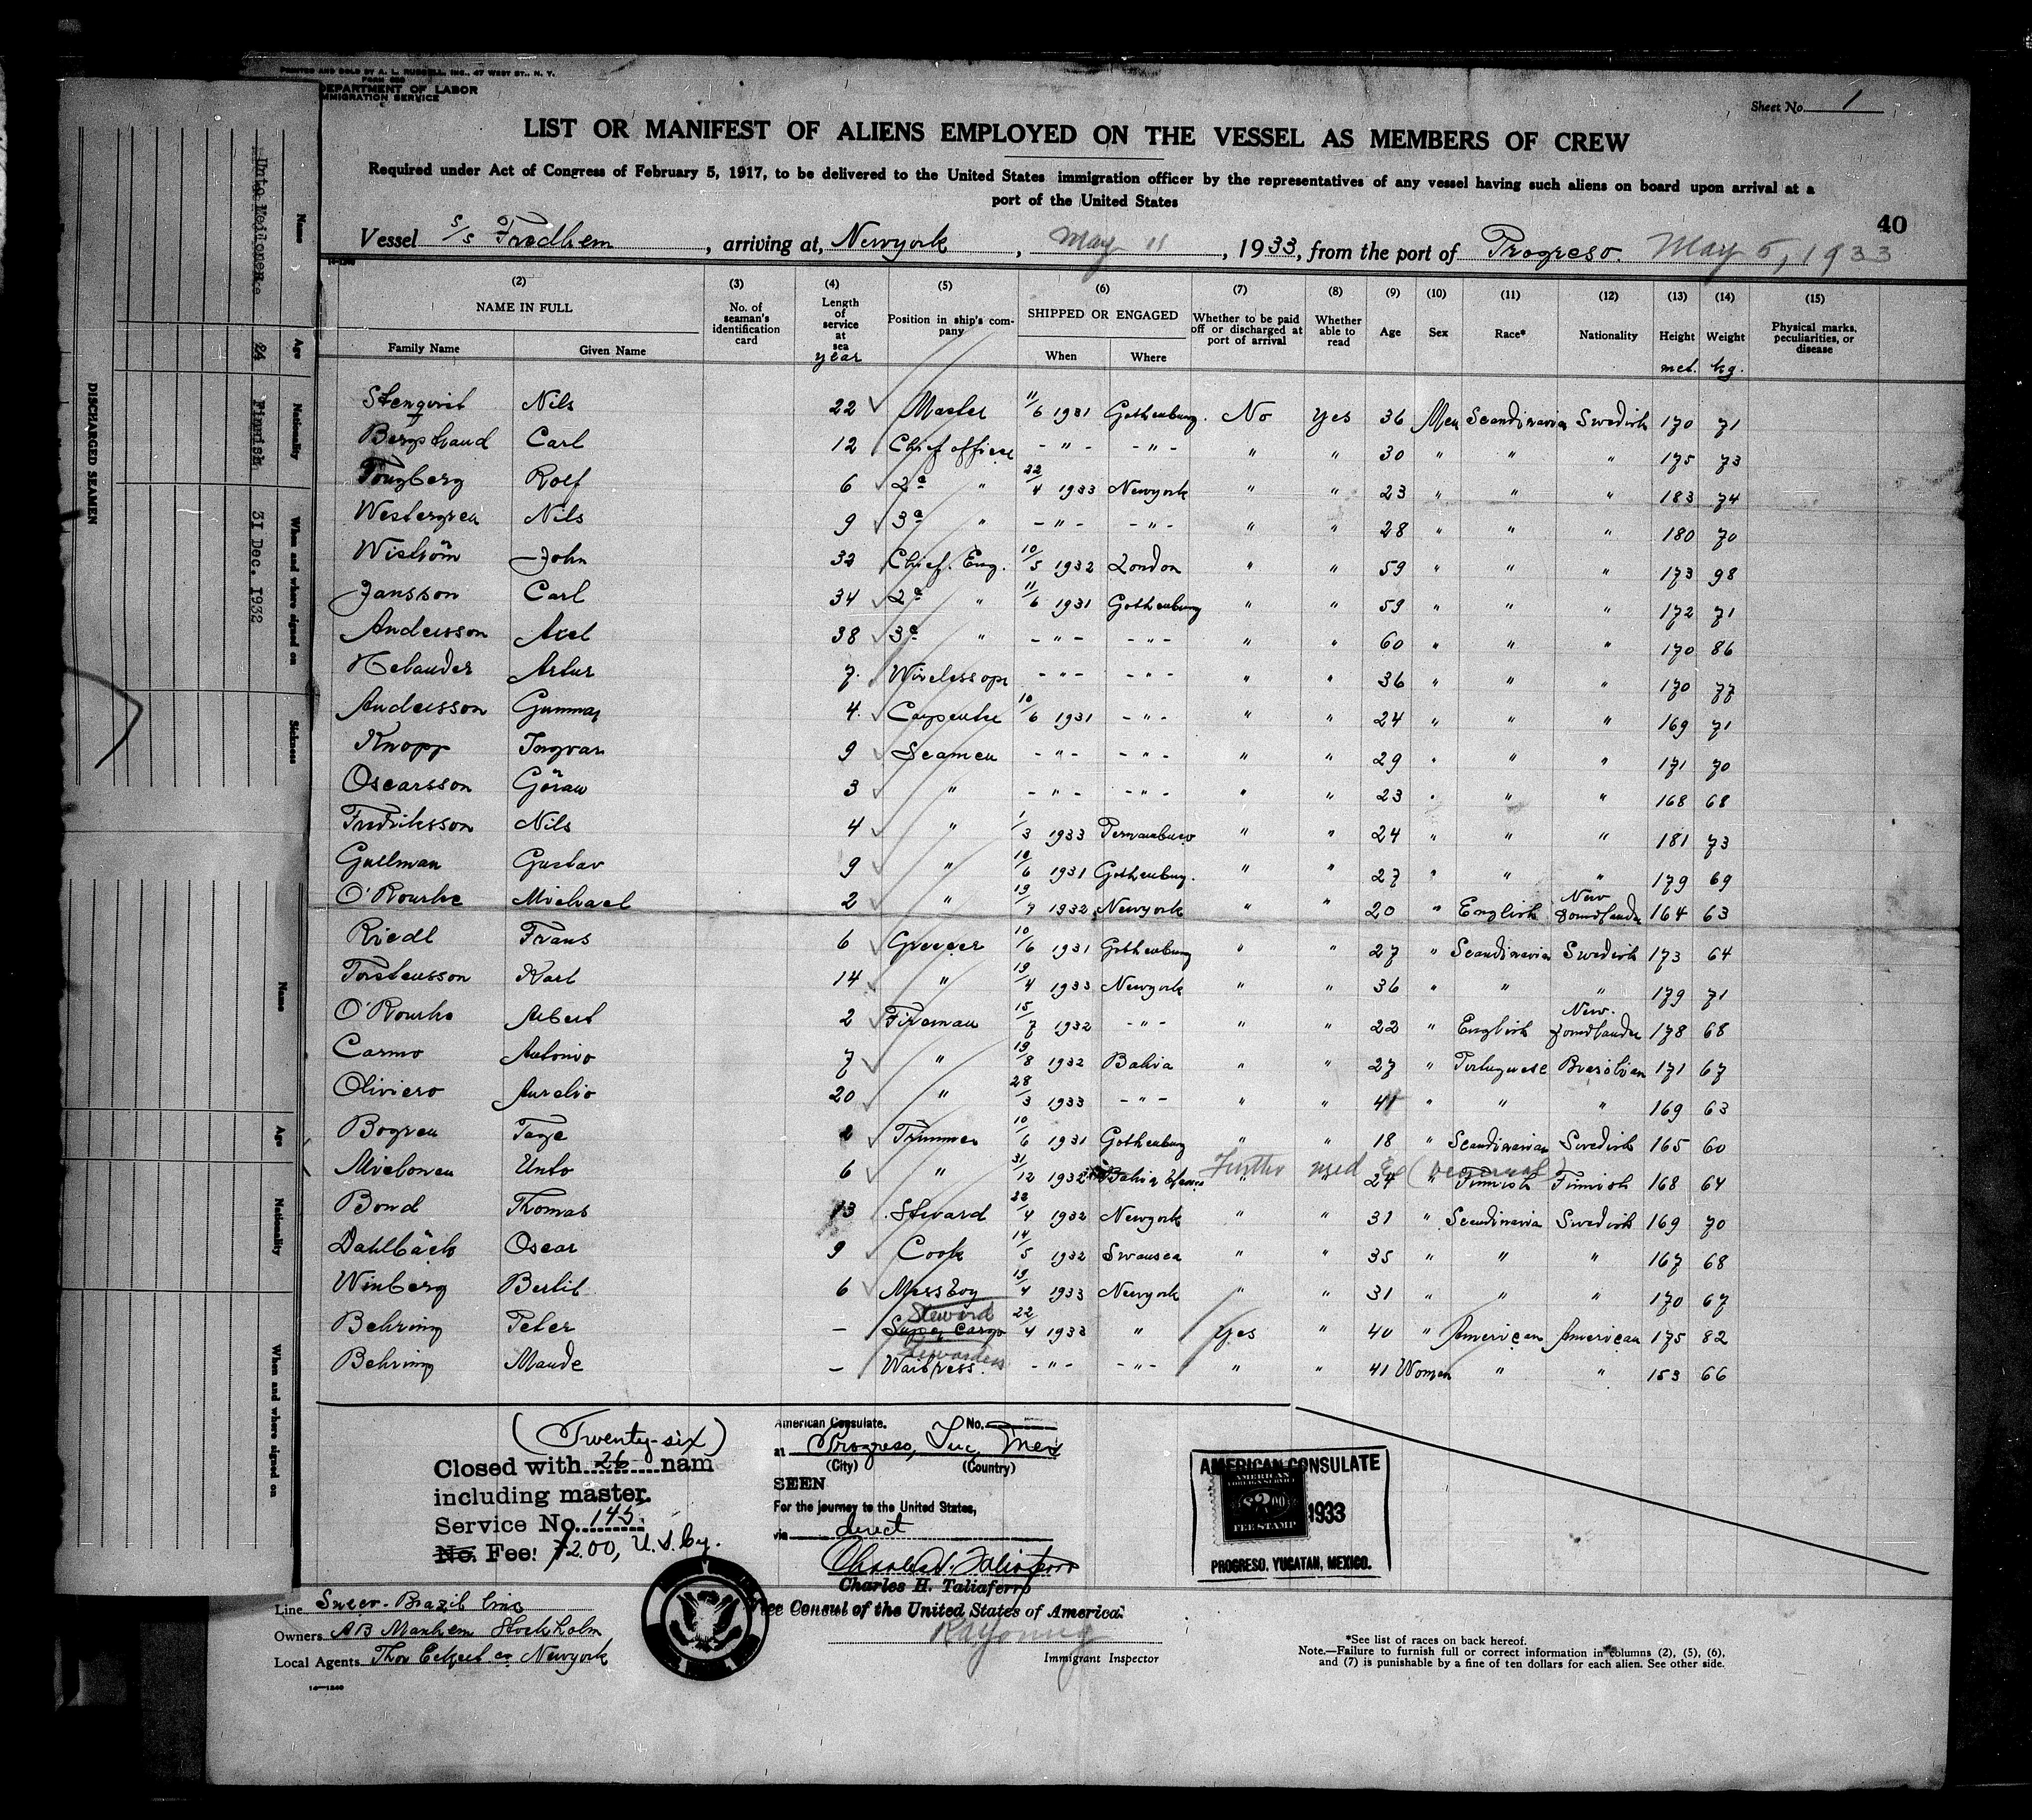 PRINTED AND SOLD BY A. L. RUSSELL, INC., 47 WEST ST., N. Y.
DEPARTMENT OF LABOR
IMMIGRATION SERVICE
Sheet No. 1
LIST OR MANIFEST OF ALIENS EMPLOYED ON THE VESSEL AS MEMBERS OF CREW
Required under Act of Congress of February 5, 1917, to be delivered to the United States immigration officer by the representatives of any vessel having such aliens on board upon arrival at a
port of the United States
40
Vessel S/S Fredhem, arriving at, Newyork, May 11, 1933, from the port of Progreso. May 5, 1933
(2) NAME IN FULL Family Name Given Name
(3) No. of seaman's identification card
(4) Length of service at sea year
(5) Position in ship's company
(6) SHIPPED OR ENGAGED When Where
(7) Whether to be paid off or discharged at port of arrival
(8) Whether able to read
(9) Age
(10) Sex
(11) Race*
(12) Nationality
(13) Height met.
(14) Weight kg.
(15) Physical marks, peculiarities, or disease
Stenqvist Nils 22 Master 11/6 1931 Gothenburg. No Yes 36 Men Scandinavia Swedish 170 71
Carl 12 Chief officer - " - - " - " " 30 " " " 175 73
Rolf 6 2e " 22/4 1933 Newyork " " 23 " " " 183 74
Westergren Nils 9 3e " - " - - " - " " 28 " " " 180 70
Wiström John 32 Chief. Eng. 10/5 1932 London " " 59 " " " 173 98
Jansson Carl 34 2e " 11/6 1931 Gothenburg " " 59 " " " 172 71
Andersson Axel 38 3e " - " - - " - " " 60 " " " 170 86
Artur 7. Wireless ope - " - - " - " " 36 " " " 170 77
Andersson Gunnar 4. Carpenter 10/6 1931 - " - " " 24 " " " 169 71
Knopp Ingvar 9 Seamen - " - - " - " " 29 " " " 171 70
Oscarsson Göran 3 " - " - - " - " " 23 " " " 168 68
Fredriksson Nils 4 " 1/3 1933 Pernambuco " " 24 " " " 181 73
Gullman Gustav 9 " 10/6 1931 Gothenburg. " " 27 " " " 179 69
O'Rourke Michael 2 " 19/7 1932 Newyork " " 20 " English New foundlander 164 63
Riedl Frans 6 Greeser 10/6 1931 Gothenburg " " 27 " Scandinavian Swedish 173 64
Torstensson Karl 14 " 19/4 1933 Newyork " " 36 " " " 179 71
O'Rourke Albert 2 Fireman 15/7 1932 - " - " " 22 " English New. foundlander 178 68
Carmo Antonio 7 " 19/8 1932 Bahia " " 27 " Portuguese Brasilian 171 67
Oliviero Aurelio 20 " 28/3 1933 - " - " " 41 " " " 169 63
Bogren Tage 2 Trimmer 10/6 1931 Gothenburg " " 18 " Scandinavian Swedish 165 60
Unto 6 " 31/12 1932 Bahia Blanca Further med Ex " " 24 " Finnish Finnish 168 64
Bond Thomas 13 Steward 22/4 1932 Newyork " " 31 " Scandinavia Swedish 169 70
Dahlbäck Oscar 9 Cook 14/5 1932 Swansea 35 " " " 167 68
Winberg Bertil 6 Messboy 19/4 1933 Newyork " " 31 " " " 170 67
Behring Peter — Steward Super Cargo 22/4 1933 " Yes " 40 " American American 175 82
Behring Maude — Stewardess Waitress. - " - - " - " " 41 Women " " 153 66
(Twenty-six)
Closed with 26 nam
including master.
Service No. 145.
No. Fee: $2.00, U.S.Cy.
American Consulate. No.
at Progreso, Yuc, Mex
(City) (Country)
SEEN
For the journey to the United States,
via direct
Charles H. Taliaferro
Charles H. Taliaferro
Vice Consul of the United States of America.
Immigrant Inspector
AMERICAN CONSULATE
AMERICAN FOREIGN SERVICE
$2.00
FEE STAMP
1933
PROGRESO, YUCATAN, MEXICO.
Line Sueco-Brazil line
Owners AB Manhem Stockholm
Local Agents Thor Eckert co Newyork
*See list of races on back hereof.
Note.—Failure to furnish full or correct information in columns (2), (5), (6),
and (7) is punishable by a fine of ten dollars for each alien. See other side.
DISCHARGED SEAMEN
Name Age Nationality When and where signed on Sickness
Unto 24 Finnish 31 Dec. 1932
Name Age Nationality When and where signed on